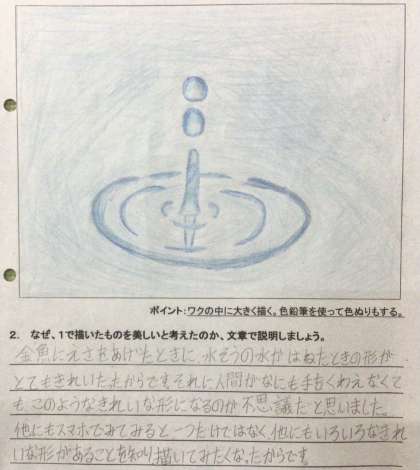 ポイント：ワクの中に大きく描く。色鉛筆を使って色ぬりもする。
2. なぜ、1で描いたものを美しいと考えたのか、文章で説明しましょう。
金魚にえさをあげたときに 水そうの水が はねたときの形が
とてもきれいだたからです。それに人間がなにも手をくわえなくて
も このようなきれいな形になるのが不思議だと思いました。
他にもスマホでみてみると一つだけではなく、他にもいろいろなきれ
いな形があることを知り描いてみたくなったからです